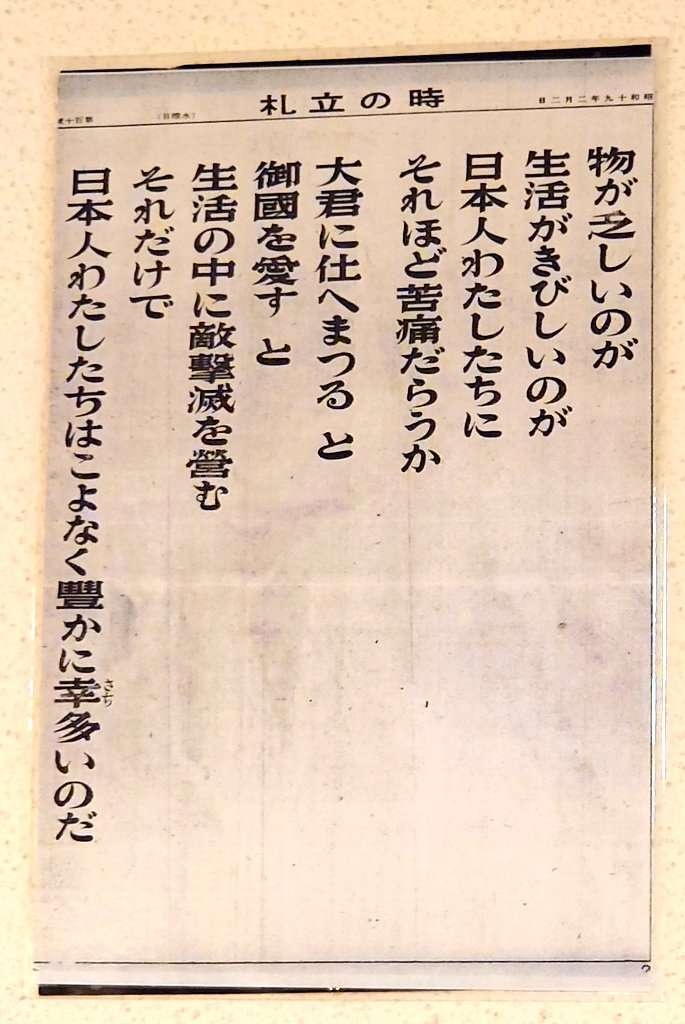 昭和十九年二月二日
時の立札
(水曜日)
物が乏しいのが
生活がきびしいのが
日本人わたしたちに
それほど苦痛だらうか
大君に仕へまつる と
御國を愛す と
生活の中に敵撃滅を營む
それだけで
日本人わたしたちはこよなく豐かに幸多いのだ
さち